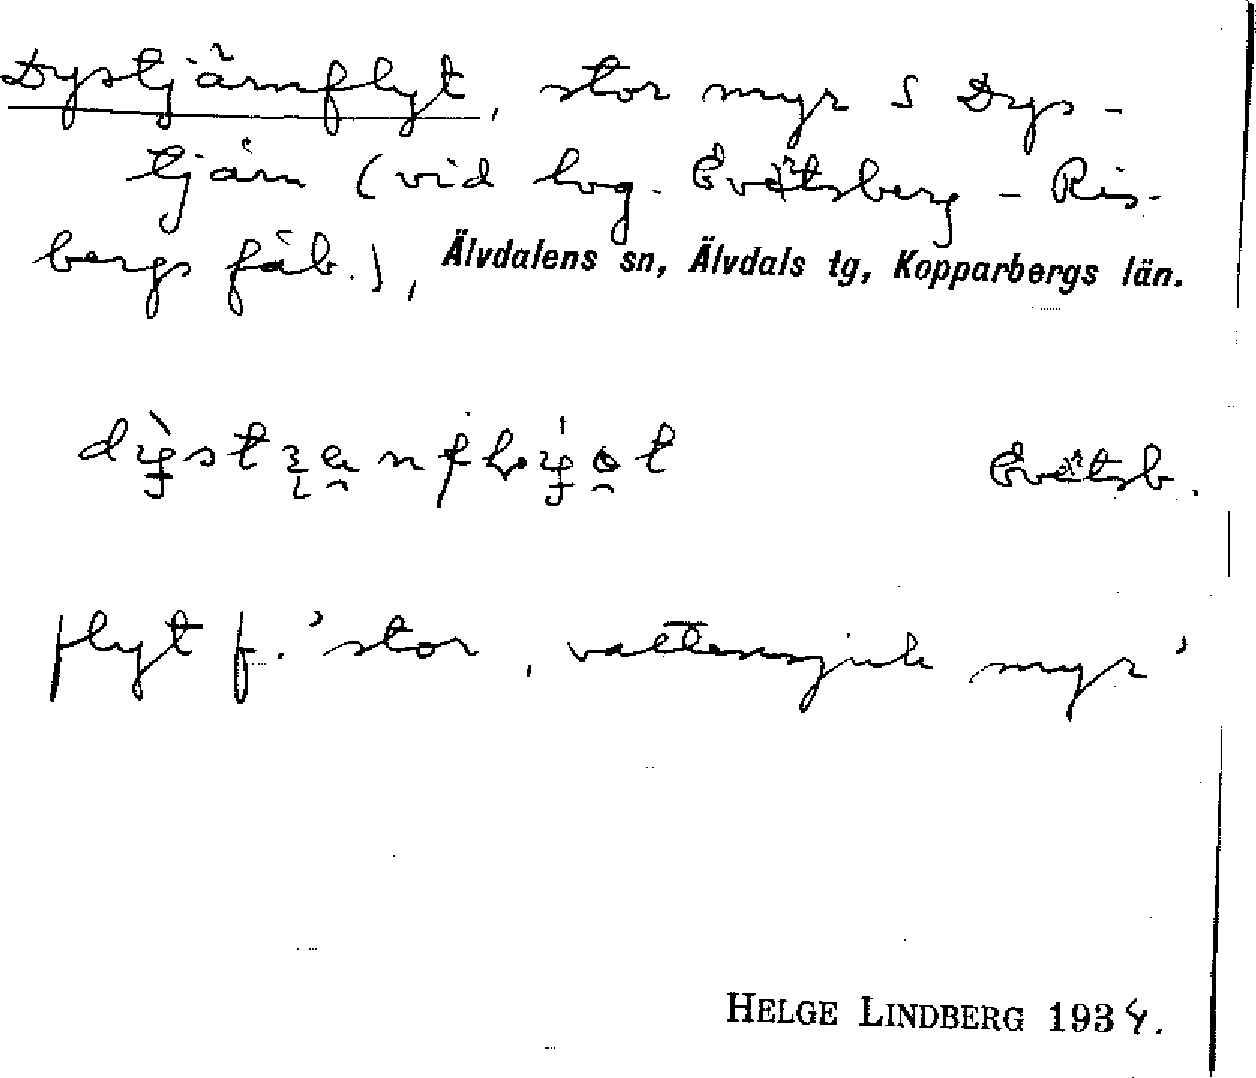 Dystjärnflyt, stor myr S Dys-
tjärn (vid lvg. Evertsberg - Ris-
bergs fäb.), Älvdalens sn, Älvdals tg, Kopparbergs län.
flyt f. 'stor, vattensjuk myr'
HELGE LINDBERG 1934.